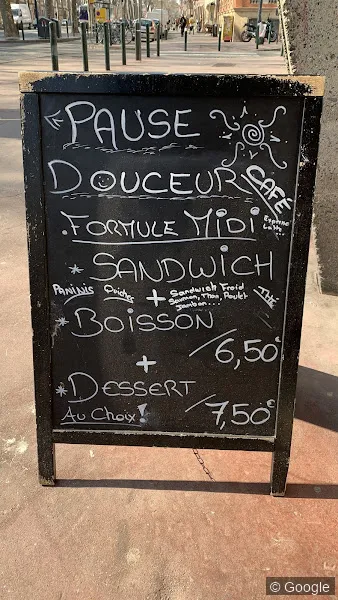 PAUSE
DOUCEUR
CAFÉ
FORMULE MIDI
* SANDWICH
PANINIS Quiches + Sandwich Froid
Saumon, Thon, Poulet
Jambon...
THÉ
* BOISSON
/6,50€
+
* DESSERT
Au Choix! /7,50€
© Google